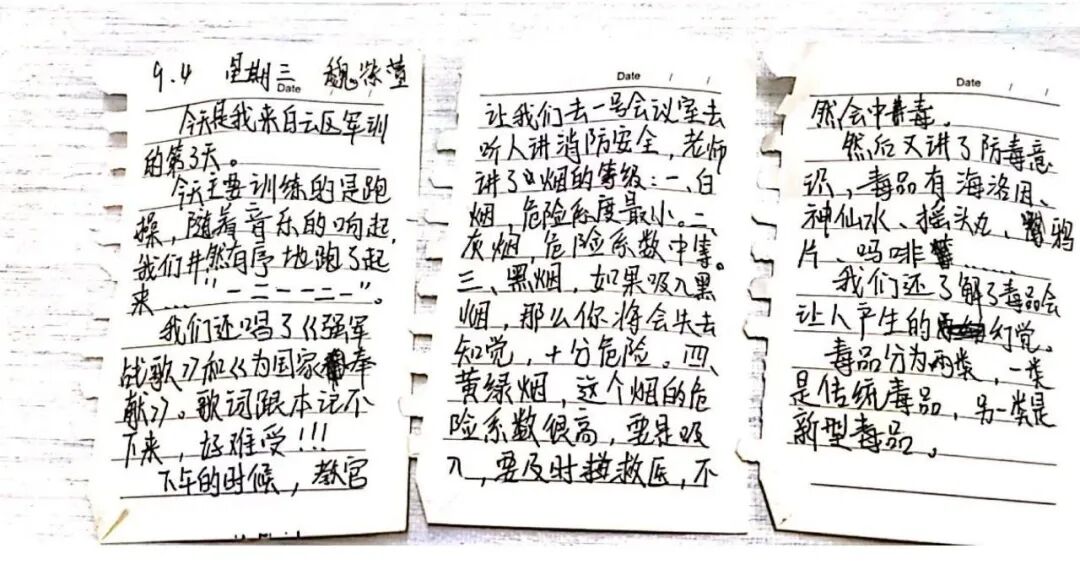 9.4 星期三 魏
Date
今天是我来白云区军训
的第3天。
今天主要训练的是跑
操,随着音乐的响起,
我们井然有序地跑了起
来……"一二一一二一"。
我们还唱了《强军
战歌》和《为国家奉
献》。歌词跟本记不
下来,好难受!!!
下午的时候,教官
Date / /
让我们去一号会议室去
听人讲消防安全,老师
讲了《烟的等级:一、白
烟,危险系度最小。二、
灰烟,危险系数中等。
三、黑烟,如果吸入黑
烟,那么你将会失去
知觉,十分危险。四、
黄绿烟,这个烟的危
险系数很高,要是吸
入,要及时救医,不
Date / /
然会中毒。
然后又讲了防毒意
识,毒品有海洛因、
神仙水、摇头丸、鸦
片、吗啡……
我们还了解了毒品会
让人产生的幻觉。
毒品分为两类,一类
是传统毒品,另一类是
新型毒品。